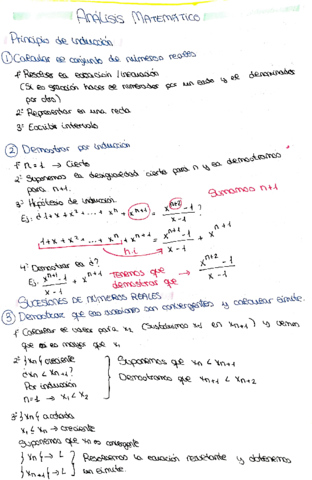 ANÁLISIS MATEMÁTICO
Principio de inducción
① Calcular el conjunto de números reales
1º Resolver la ecuación/inecuación
(Si es fracción haces el numerador por un lado y el denominador
por otro)
2º Representar en una recta
3º Escribir intervalo
② Demostrar por inducción
1º n=1 → Cierto
2º Suponemos la desigualdad cierta para n y la demostramos
para n+1.
3º Hipótesis de inducción Sumamos n+1
Ej: ¿1+x+x²+...+xⁿ+xⁿ⁺¹ = (xⁿ⁺² - 1)/(x-1)?
1+x+x²+...+xⁿ+xⁿ⁺¹ = (xⁿ⁺¹ - 1)/(x-1) + xⁿ⁺¹
h.i
4º Demostrar la ¿?
Ej: (xⁿ⁺¹ - 1)/(x-1) + xⁿ⁺¹ Tenemos que demostrar que → (xⁿ⁺² - 1)/(x-1)
SUCESIONES DE NÚMEROS REALES
③ Demostrar que las sucesiones son convergentes y calcular límite.
1º Calcular el valor para x₂ (Sustituimos x₁ en xₙ₊₁) y vemos
que es mayor que x₁
2º {xn} creciente
¿xn < xn+1?
Por inducción
n=1 → x₁ < x₂
Suponemos que xn < xn+1
Demostramos que xn+1 < xn+2
3º {xn} acotada
x₁ ≤ xn → creciente
Suponemos que xn es convergente
{xn} → L
{xn+1} → L
Resolvemos la ecuación resultante y obtenemos
un límite.